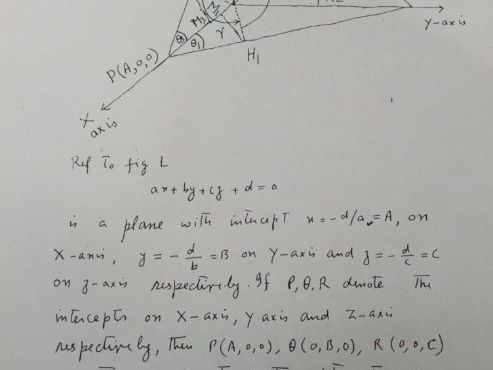 M₁
θ₂
θ₁
γ
H₁
Y-axis
P(A,0,0)
X
axis
Ref To fig 1
ax + by + cz + d = 0
is a plane with intercept x = -d/a = A, on
X-axis, y = - d/b = B on Y-axis and z = - d/c = C
on z-axis respectively. If P, Q, R denote The
intercepts on X-axis, Y axis and Z-axis
respectively, Then P(A,0,0), Q(0,B,0), R(0,0,C)